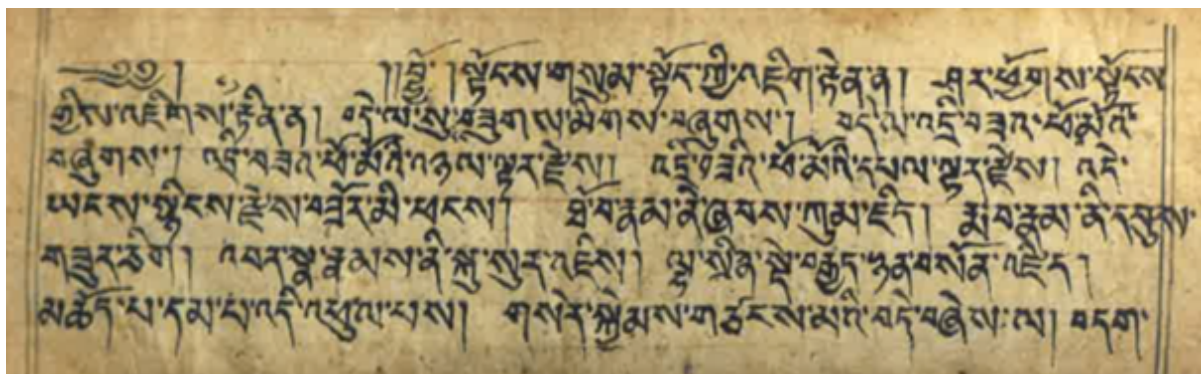 ༄༅། །།ཛྙོ། །སྟོངས་གསུམ་སྟོང་ཀྱི་འཇིག་རྟེན་ན། ཤར་ཕྱོགས་སྟོངས་
གྱིས་འཇིགས་རྟེནི་ན། བདེ་ལ་སྲུ་གཟུགས་མིགས་བཞུགས། བདེ་ལ་འདྲི་བཟའ་ཕོ་མོའི་
བཞུགས། འདྲི་བཟའ་ཕོ་མོའི་འཉལ་ལྟར་རྫེས། འདྲི་བཟའི་ཕོ་མོའི་དཔལ་ལྟར་རྫེས། འདེ་
ཡངས་སྙིངས་རྫེས་བཟོར་མི་ཕངས། ཐོ་བ་རྣམ་ནི་ཞབས་ཀུམ་ཛིད། རྨ་བ་རྣམ་ནི་དབུས་
གཟུར་ཅིག། འབར་སྣ་རྣམས་ནི་སྐུ་སུར་འཛིས། ལྷ་སྲིན་སྡེ་བརྒྱད་ཉན་གསོན་འཛིད།
མཆོད་པ་དམ་པ་འདི་འཕུལ་པས། གསེར་སྐྱེམས་གཙང་མའི་བདེ་བཞེས་ལ། བདག་